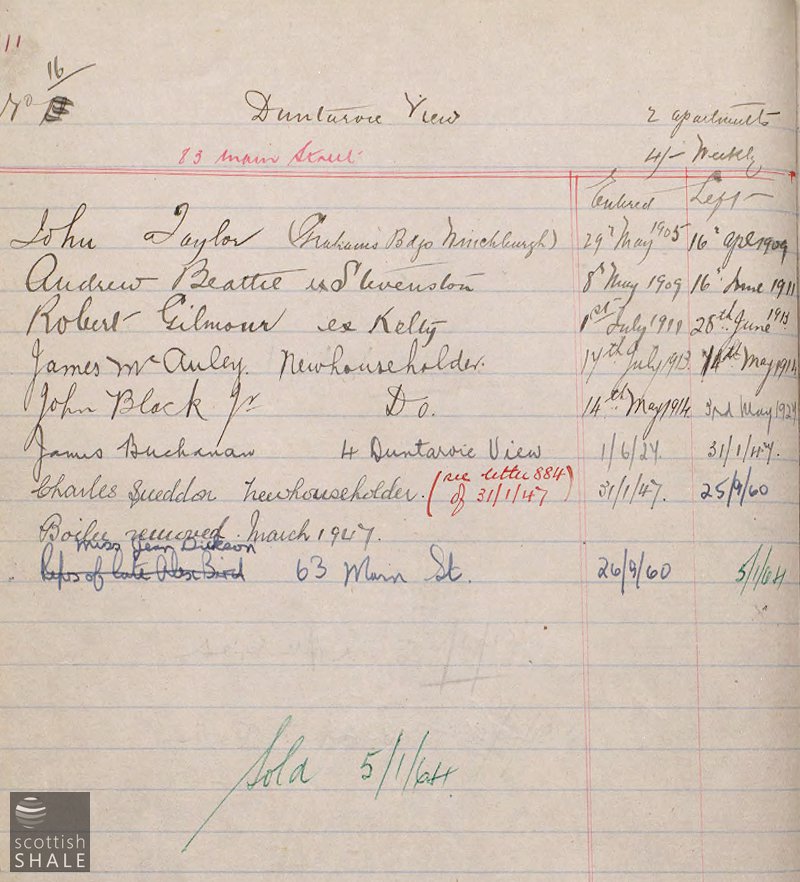 11
16
No
Duntarvie View 2 apartments
83 Main Street 4/- Weekly
Entered Left
John Taylor (Grahams Bdgs Winchburgh) 29th May 1905 16th Apl 1909
Andrew Beattie ex Stevenston 8th May 1909 16th June 1911
Robert Gilmour ex Kelty 1st July 1911 28th June 1913
James McAuley. Newhouseholder. 14th July 1913. 14th May 1914
John Black Jr Do. 14th May 1914 3rd May 1927
James Buchanan 4 Duntarvie View 1/6/27. 31/1/47.
Charles Sneddon Newhouseholder. (see letter 884 of 31/1/47) 31/1/47. 25/9/60
Boiler removed. March 1947.
Miss Jean Dickson
Reps of late Alex Bird 63 Main St. 26/9/60 5/1/64
Sold 5/1/64.
scottish
SHALE